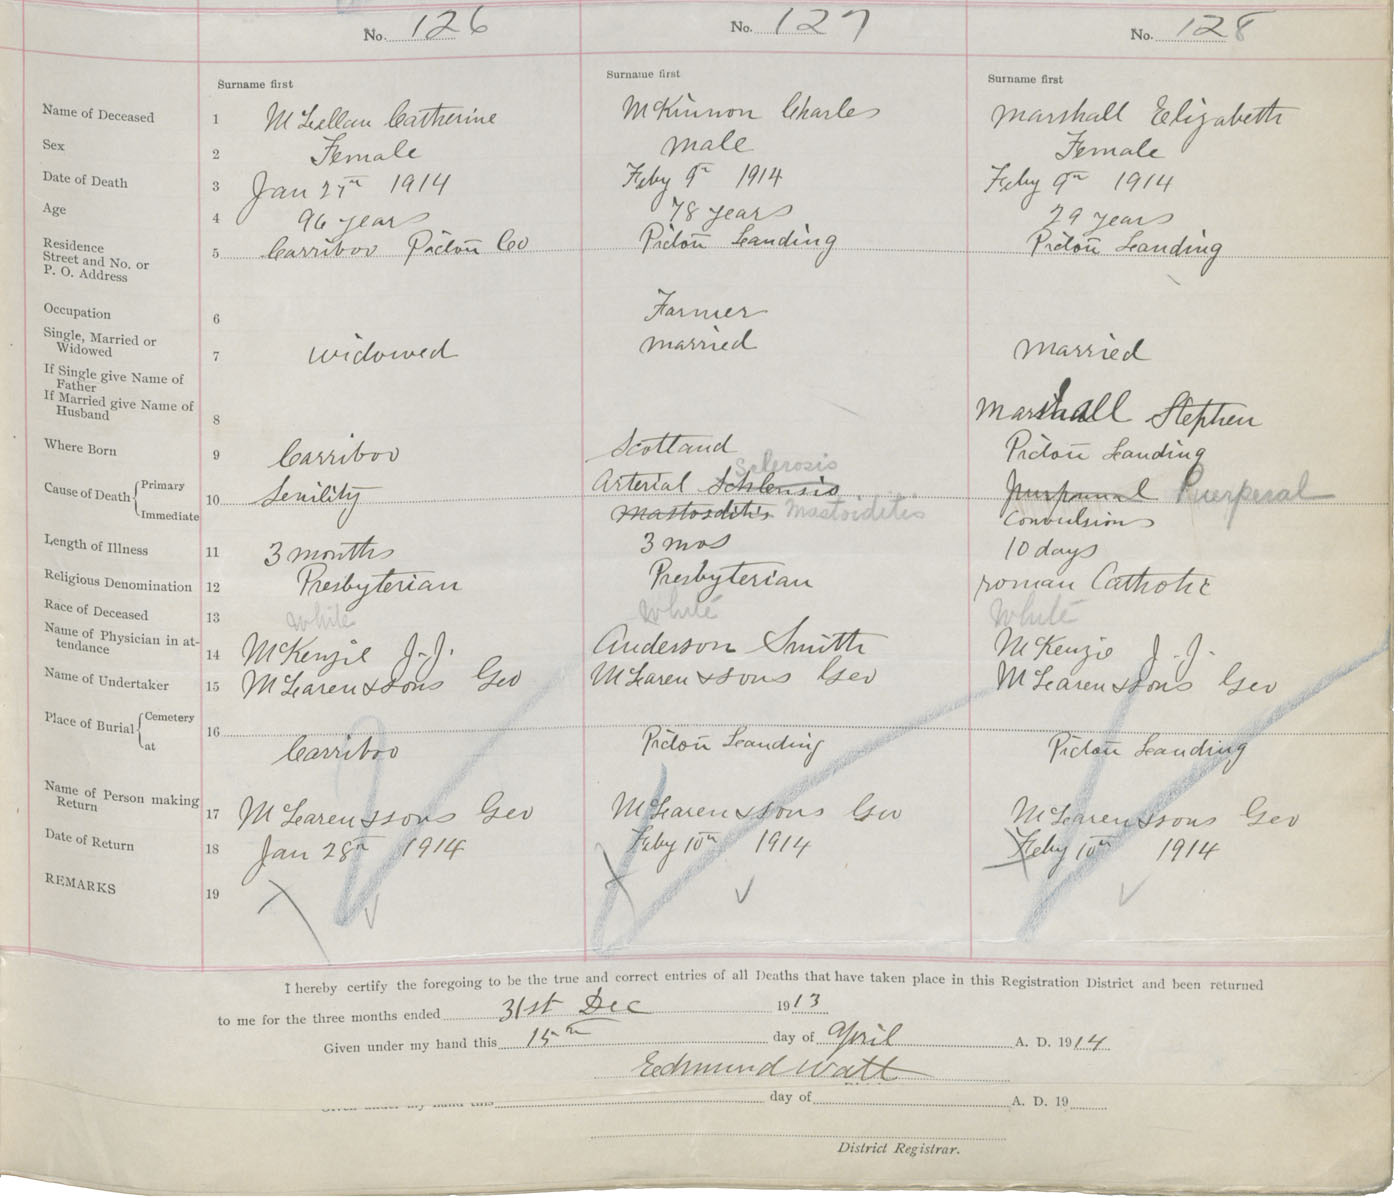 No. 126 No. 127 No. 128
Surname first Surname first Surname first
Name of Deceased 1 McLellan Catherine McKinnon Charles Marshall Elizabeth
Sex 2 Female male Female
Date of Death 3 Jan 27th 1914 Feby 9th 1914 Feby 9th 1914
Age 4 96 years 78 years 29 years
Residence
Street and No. or 5 Carriboo Pictou Co Pictou Landing Pictou Landing
P. O. Address
Occupation 6 Farmer
Single, Married or
Widowed 7 widowed married married
If Single give Name of
Father
If Married give Name of
Husband 8 Marshall Stephen
Where Born 9 Carriboo Scotland Pictou Landing
Sclerosis
Cause of Death Primary 10 Senility Arterial Puerperal
Immediate Mastoiditis Mastoiditis Convulsions
Length of Illness 11 3 months 3 mos 10 days
Religious Denomination 12 Presbyterian Presbyterian roman Catholic
Race of Deceased 13 White White White
Name of Physician in at-
tendance 14 McKenzie J.J. Anderson Smith McKenzie J.J.
Name of Undertaker 15 McLaren & sons Geo McLaren & sons Geo McLaren & sons Geo
Place of Burial Cemetery 16
at Carriboo Pictou Landing Pictou Landing
Name of Person making
Return 17 McLaren & sons Geo McLaren & sons Geo McLaren & sons Geo
Date of Return 18 Jan 28th 1914 Feby 10th 1914 Feby 10th 1914
REMARKS 19
I hereby certify the foregoing to be the true and correct entries of all Deaths that have taken place in this Registration District and been returned
to me for the three months ended 31st Dec 1913
Given under my hand this 15th day of April A. D. 1914
Edmund Watt
Given under my hand this day of A. D. 19
District Registrar.